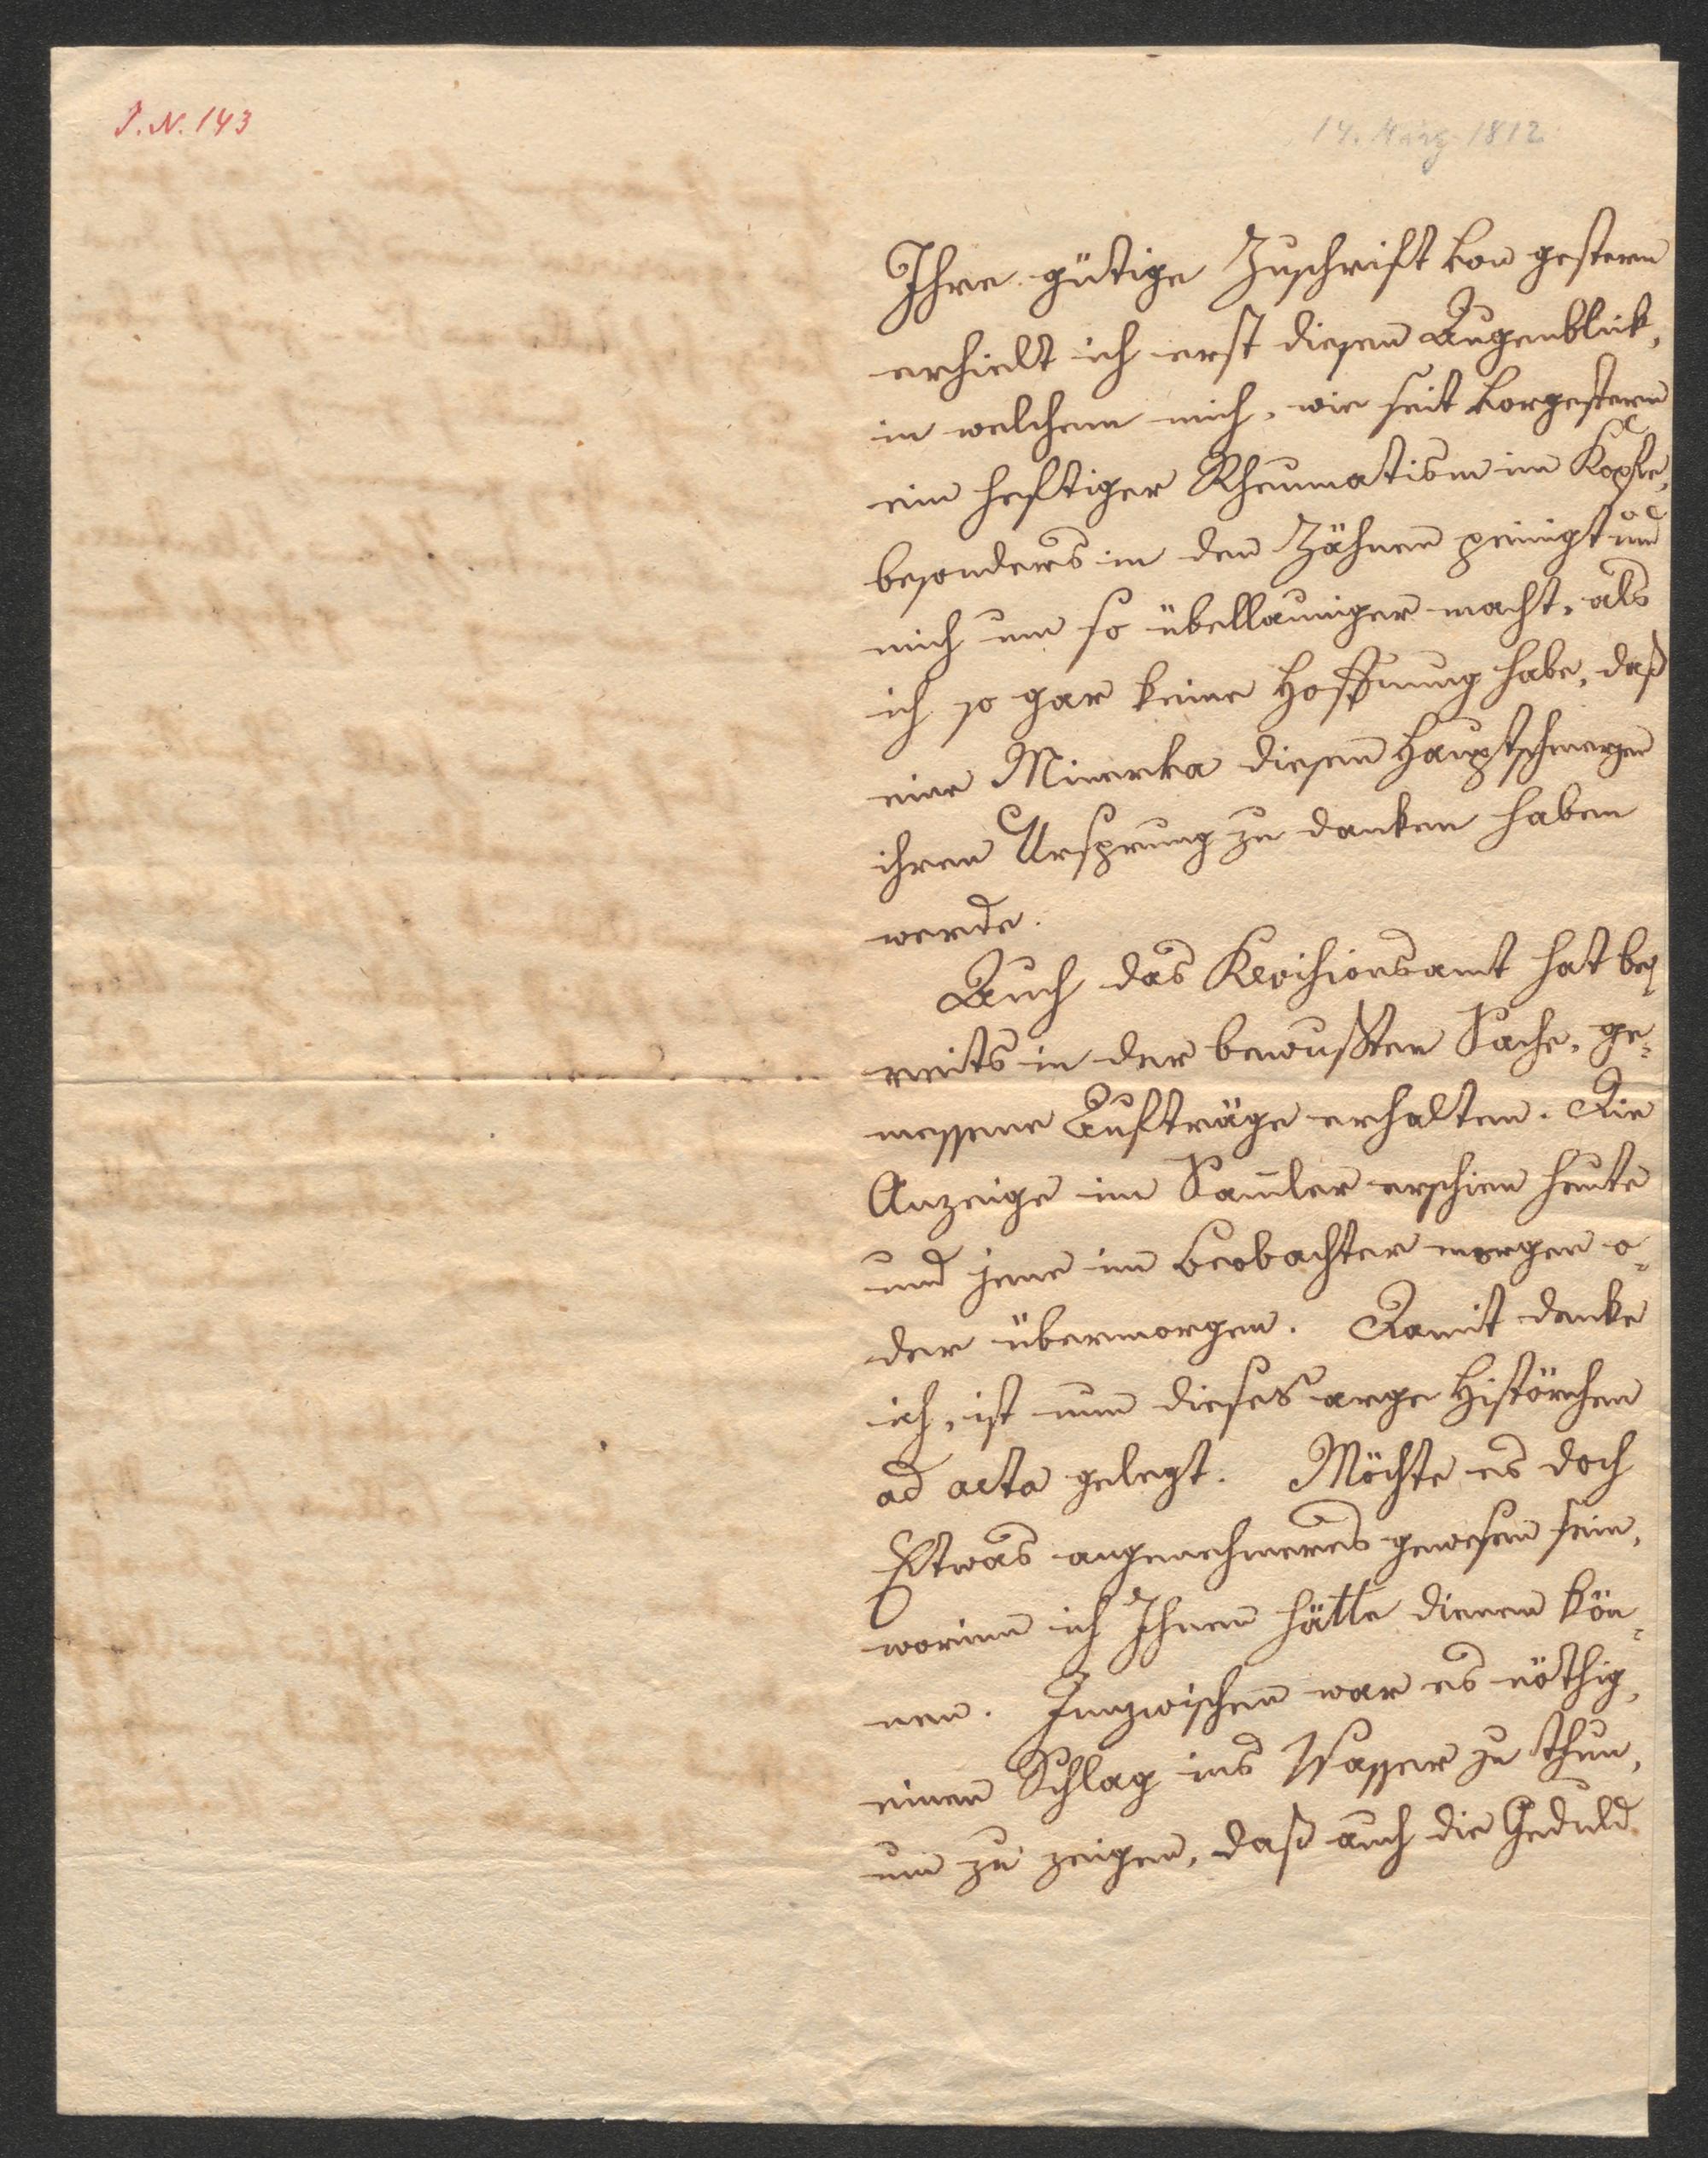 J. N. 143
14. März 1812
Ihre gütige Zuschrift von gestern
erhielt ich erst diesen Augenblick,
in welchem mich, wie seit vorgestern
ein heftiger Rheumatism im Kopfe,
besonders in den Zähnen peinigt und
mich um so übellauniger macht, als
ich so gar keine Hoffnung habe, daß
eine Minerva diesen Hauptschmerzen
ihren Ursprung zu danken haben
werde.
Auch das Revisionsamt hat be-
reits in der bewußten Sache, ge-
messene Aufträge erhalten. Die
Anzeige im Samler erschien heute
und jene im Beobachter morgen o-
der übermorgen. Damit denke
ich, ist nun dieses arge Histörchen
ad acta gelegt. Möchte es doch
Etwas angenehmeres gewesen sein,
worinn ich Ihnen hätte dienen kön-
nen. Inzwischen war es nöthig,
einen Schlag ins Wasser zu thun,
um zu zeigen, daß auch die Geduld